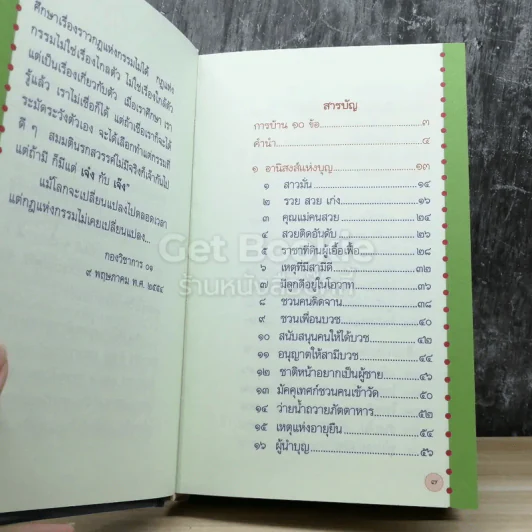 ศึกษาเรื่องราวกฎแห่งกรรมไม่ได้ กฎแห่ง
กรรมไม่ใช่เรื่องไกลตัว ไม่ใช่เรื่องใกล้ตัว
แต่เป็นเรื่องเกี่ยวกับตัว เมื่อเราศึกษา เรา
รู้แล้ว เราไม่เชื่อก็ได้ แต่ถ้าเชื่อเราก็จะได้
ระมัดระวังตัวเอง จะได้เลือกทำแต่กรรมดี
ดี ๆ สมมตินรกสวรรค์ไม่มีจริงก็เจ๊ากันไป
แต่ถ้ามี ก็มีแต่ เจ๋ง กับ เจ๊ง"
แม้โลกจะเปลี่ยนแปลงไปตลอดเวลา
แต่กฎแห่งกรรมไม่เคยเปลี่ยนแปลง...
กองวิชาการ ๐๑
๙ พฤษภาคม พ.ศ. ๒๕๕๔
สารบัญ
การบ้าน ๑๐ ข้อ ๓
คำนำ ๔
๑ อานิสงส์แห่งบุญ ๑๓
๑ สาวมั่น ๑๔
๒ รวย สวย เก่ง ๑๖
๓ คุณแม่คนสวย ๒๔
๔ สวยติดอันดับ ๒๖
๕ ราชาที่ดินผู้เอื้อเฟื้อ ๒๘
๖ เหตุที่มีสามีดี ๓๒
๗ มีลูกดีอยู่ในโอวาท ๓๖
๘ ชวนคนติดจาน ๓๘
๙ ชวนเพื่อนบวช ๔๐
๑๐ สนับสนุนคนให้ได้บวช ๔๒
๑๑ อนุญาตให้สามีบวช ๔๔
๑๒ ชาติหน้าอยากเป็นผู้ชาย ๔๖
๑๓ มัคคุเทศก์ชวนคนเข้าวัด ๕๐
๑๔ ว่ายน้ำถวายภัตตาหาร ๕๒
๑๕ เหตุแห่งอายุยืน ๕๔
๑๖ ผู้นำบุญ ๕๖
๗